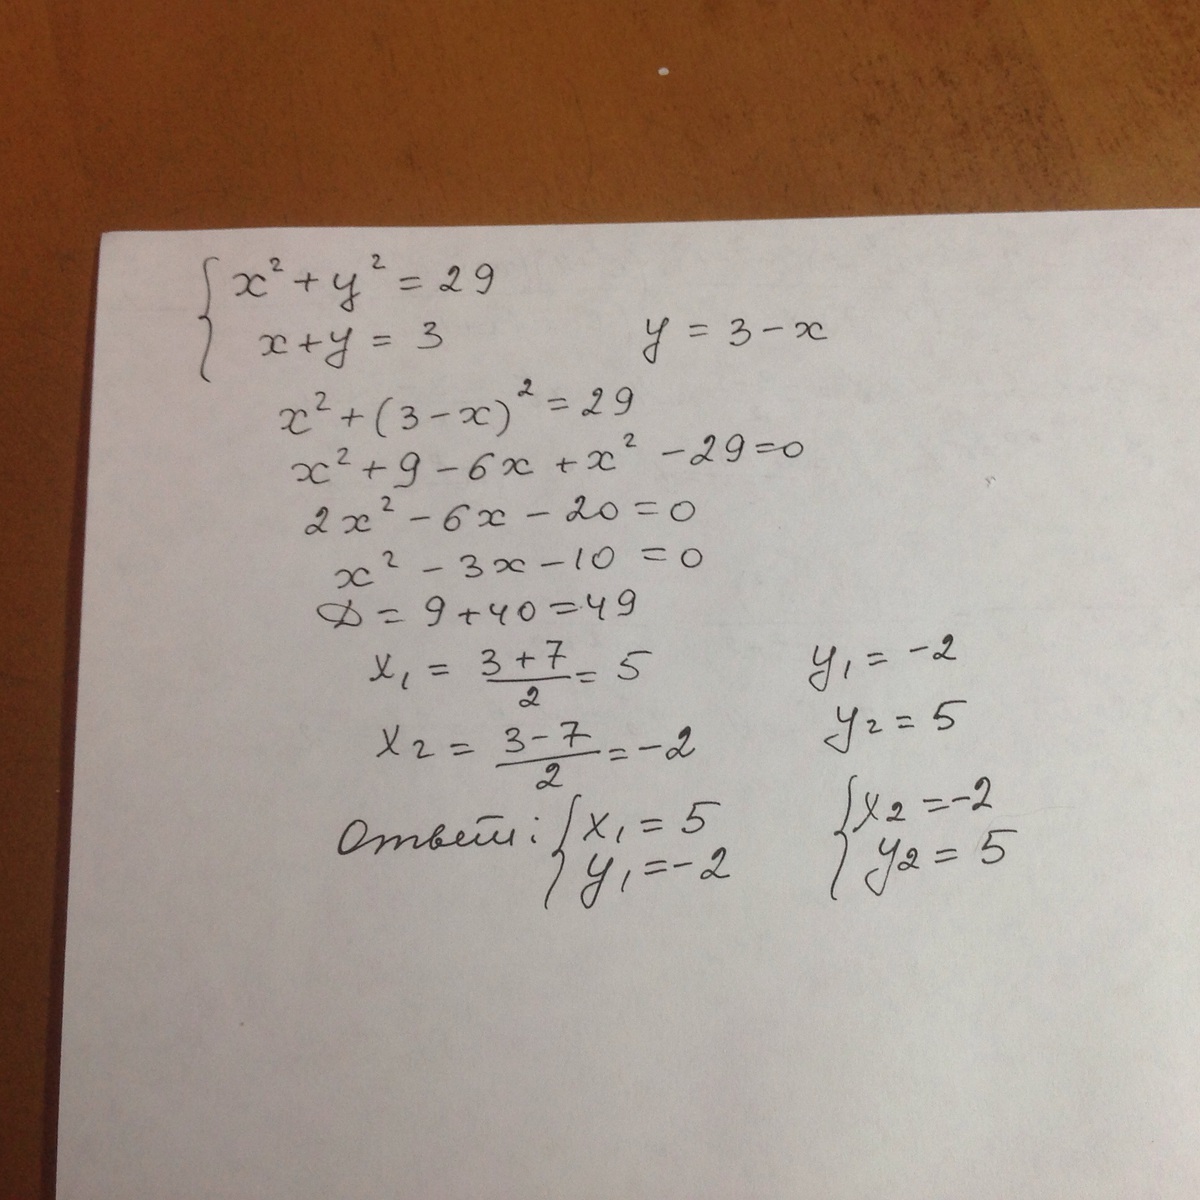 { x² + y² = 29
x + y = 3 y = 3 - x
x² + (3 - x)² = 29
x² + 9 - 6x + x² - 29 = 0
2x² - 6x - 20 = 0
x² - 3x - 10 = 0
D = 9 + 40 = 49
x₁ = (3 + 7)/2 = 5 y₁ = -2
x₂ = (3 - 7)/2 = -2 y₂ = 5
Ответ: { x₁ = 5 { x₂ = -2
y₁ = -2 y₂ = 5